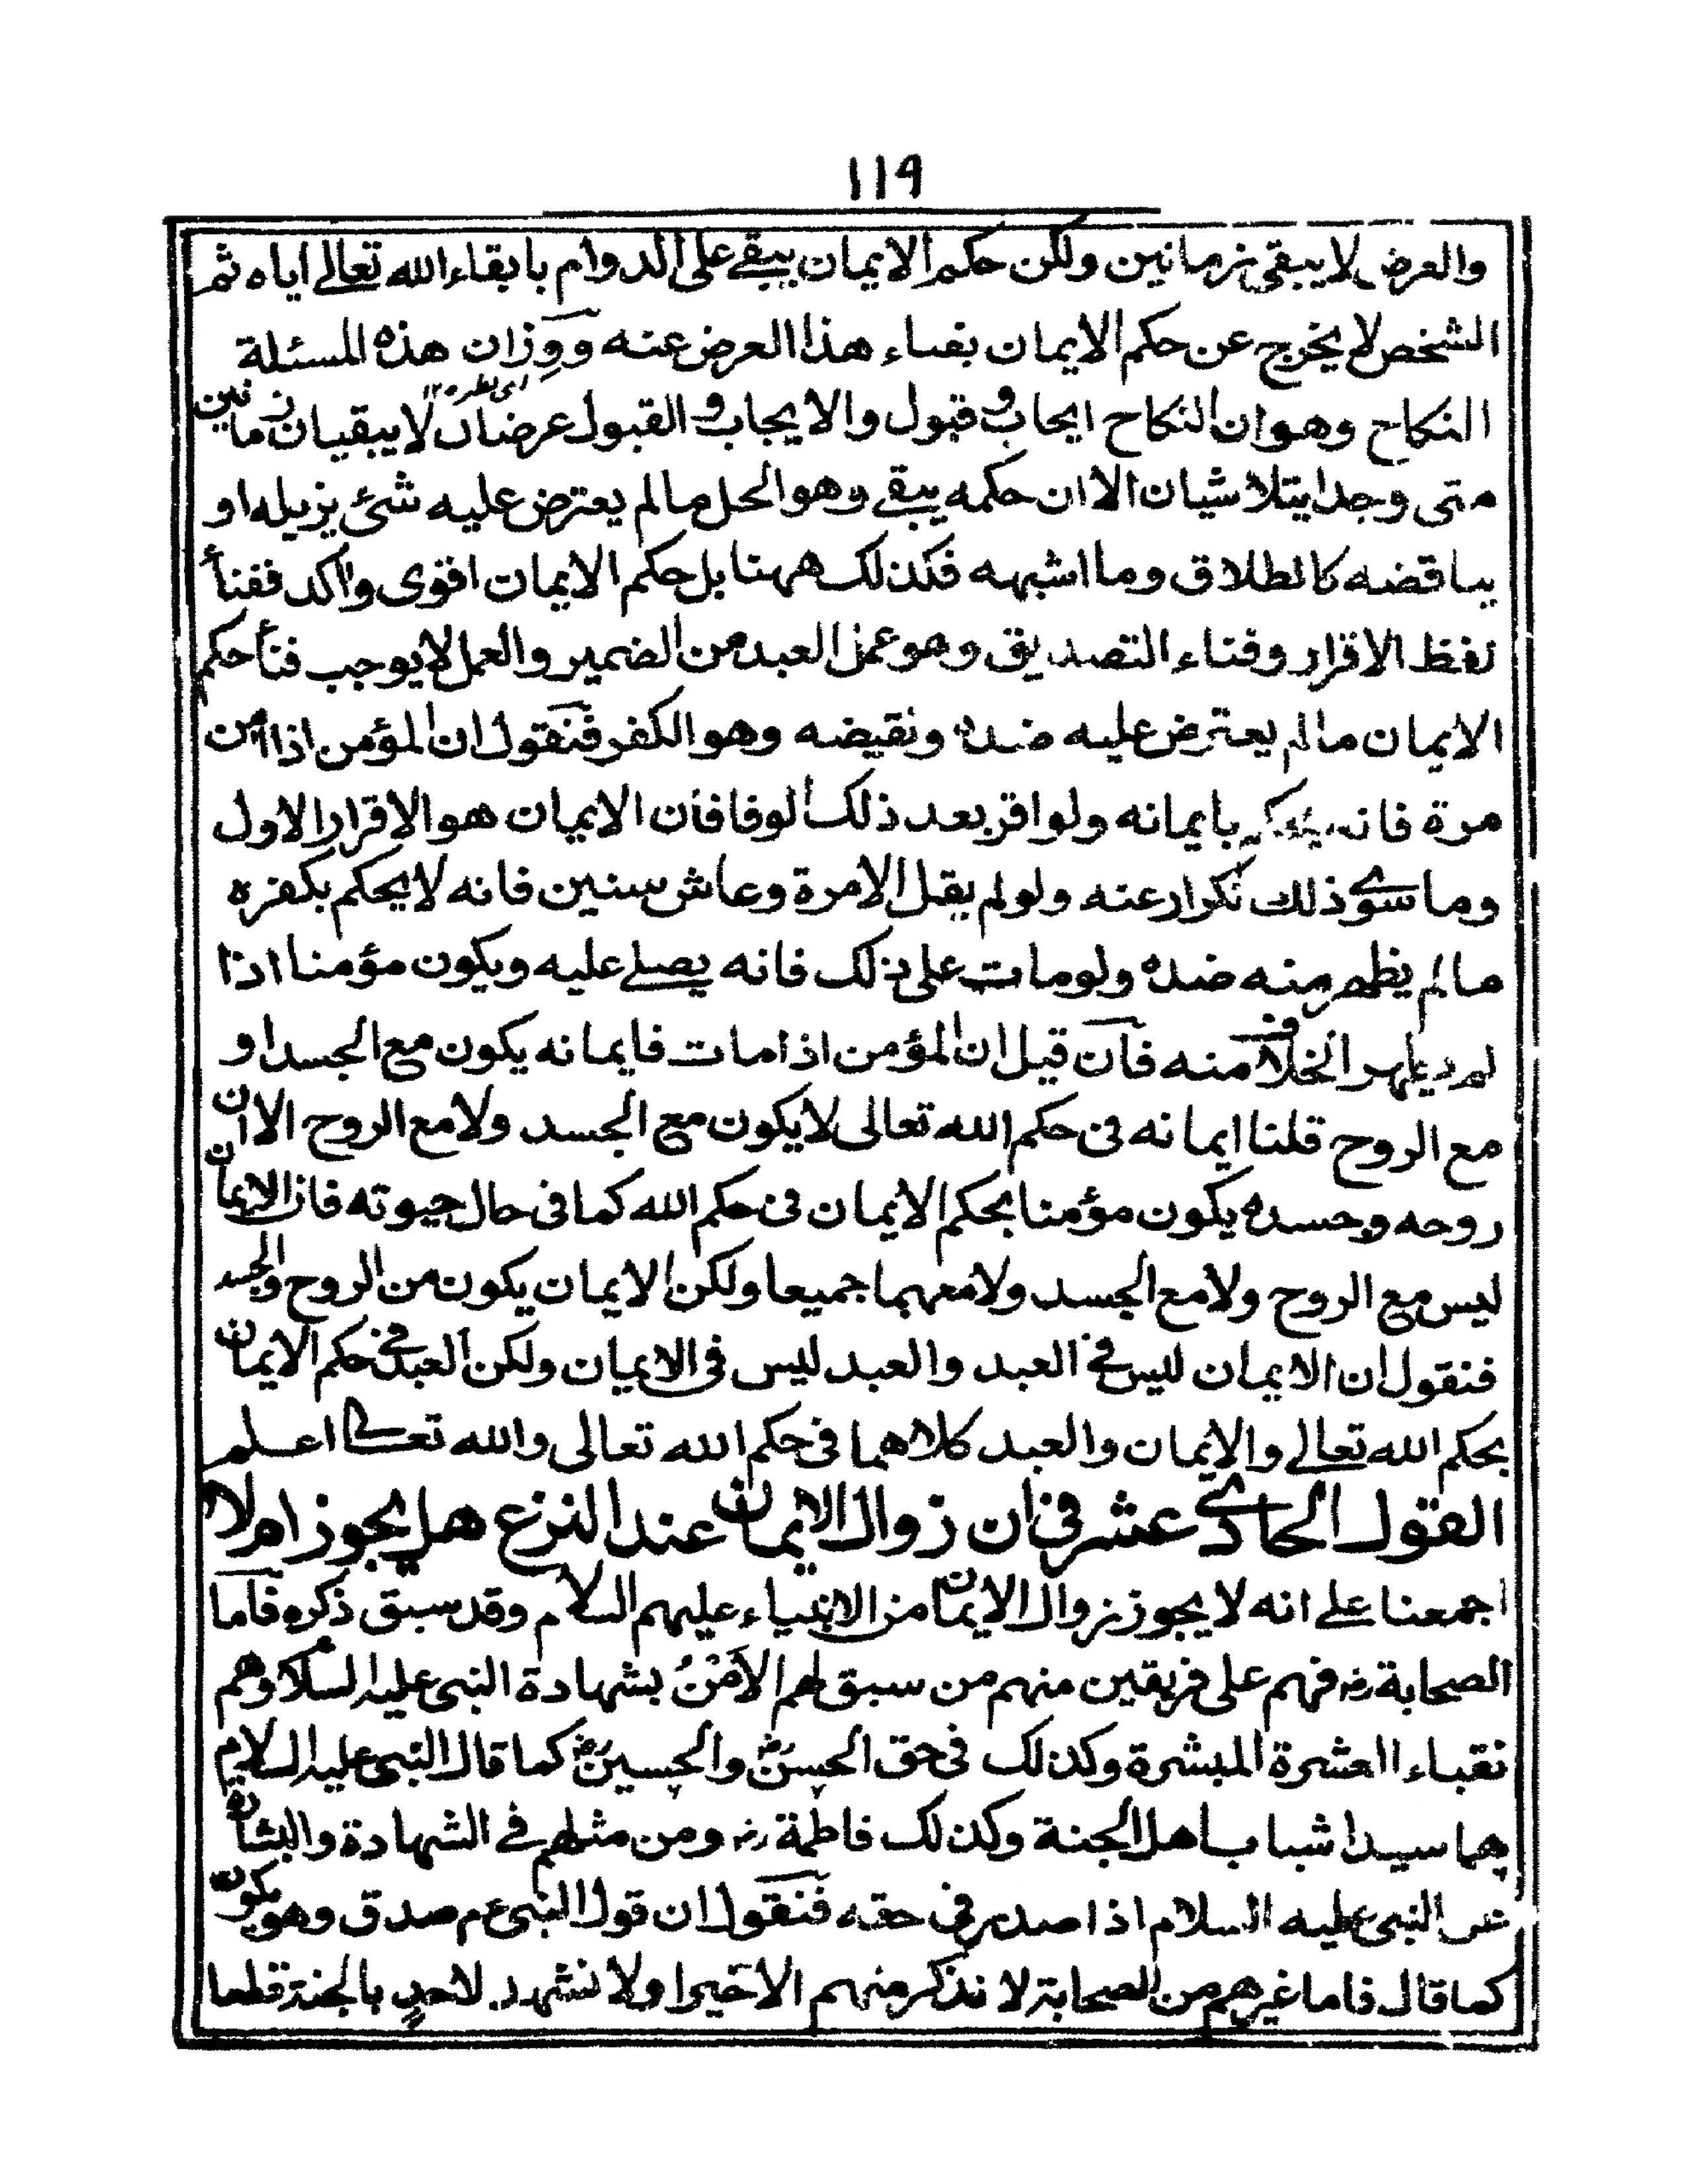 ١١٩
والعرض لا يبقى زمانين ولكن حكم الايمان يبقے على الدوام بابقاء الله تعالے اياه ثم
الشخص لا يخرج عن حكم الايمان بفناء هذا العرض عنه ووزان هذه المسئلة
اى نظيره ١٢
النكاح وهو ان النكاح ايجاب وقبول والايجاب والقبول عرضان لا يبقيان زمانين
متى وجدا يتلاشيان الا ان حكمه يبقے وهو الحل ما لم يعترض عليه شئ يزيله او
يناقضه كالطلاق وما اشبهه فكذلك ههنا بل حكم الايمان اقوى واٰكد ففنأ
لفظ الاقرار وفناء التصديق وهو عمل العبد من الضمير والعمل لا يوجب فنأ حكم
الايمان ما لم يعترض عليه ضده ونقيضه وهو الكفر فنقول ان المؤمن اذا اٰمن
مرة فانه يحكم بايمانه ولو اقر بعد ذلك الوفا فان الايمان هو الاقرار الاول
وما سوے ذلك تكرار عنه ولو لم يقل الا مرة وعاش سنين فانه لا يحكم بكفره
ما لم يظهر منه ضده ولو مات على ذلك فانه يصلے عليه ويكون مؤمنا اذا
لم يظهر الخلاف منه فان قيل ان المؤمن اذا مات فايمانه يكون مع الجسد او
مع الروح قلنا ايمانه فى حكم الله تعالى لا يكون مع الجسد ولا مع الروح الا ان
روحه وجسده يكون مؤمنا بحكم الايمان فى حكم الله كما فى حال حيوته فان الايمان
ليس مع الروح ولا مع الجسد ولا معهما جميعا ولكن الايمان يكون من الروح والجسد
فنقول ان الايمان ليس فے العبد والعبد ليس فى الايمان ولكن العبد فے حكم الايمان
بحكم الله تعالے والايمان والعبد كلاهما فى حكم الله تعالى والله تعالے اعلم
القول الحادے عشر فى ان زوال الايمان عند النزع هل يجوز ام لا
اجمعنا علے انه لا يجوز زوال الايمان من الانبياء عليهم السلام وقد سبق ذكره فاما
الصحابة رضـ فهم على فريقين منهم من سبق لهم الاَمْنُ بشهادة النبى عليه السلام وهم
نقباء العشرة المبشرة وكذلك فى حق الحسنؓ والحسينؓ كما قال النبى عليه السلام
هما سيدا شباب اهل الجنة وكذلك فاطمة رضـ ومن مثلهم فے الشهادة والبشارة
عن النبى عليه السلام اذا صدر فى حقه فنقول ان قول النبى ع م صدق وهو يكون
كما قال فاما غيرهم من الصحابة لا نذكر منهم الا خيرا ولا نشهد لاحدٍ بالجنة قطعا